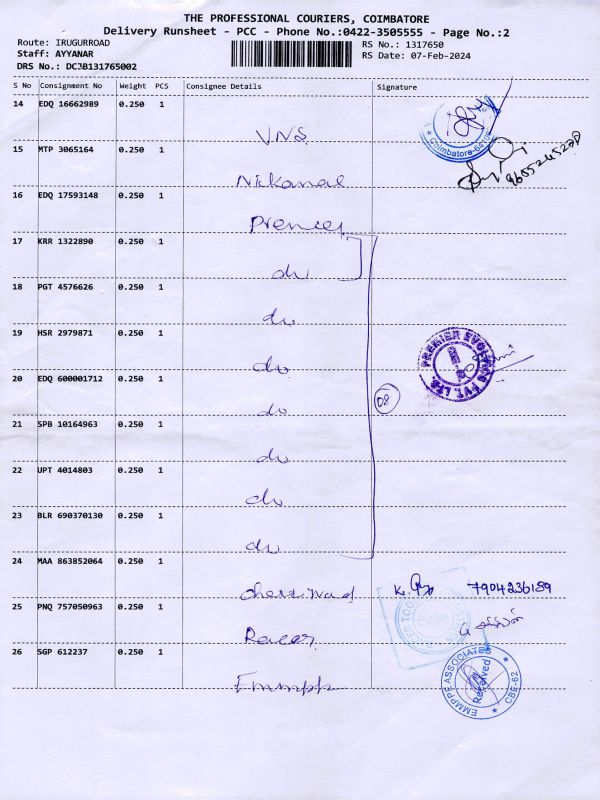 THE PROFESSIONAL COURIERS, COIMBATORE
Delivery Runsheet - PCC - Phone No.:0422-3505555 - Page No.:2
Route: IRUGURROAD
Staff: AYYANAR
DRS No.: DCJB131765002
RS No.: 1317650
RS Date: 07-Feb-2024
S No Consignment No Weight PCS Consignee Details Signature
14 EDQ 16662989 0.250 1
VNS
Coimbatore
15 MTP 3065164 0.250 1
16 EDQ 17593148 0.250 1
Premier
17 KRR 1322890 0.250 1
do
18 PGT 4576626 0.250 1
do
19 HSR 2979871 0.250 1
do
PREMIER EVOLVICS PVT. LTD.
20 EDQ 600001712 0.250 1
do
08
21 SPB 10164963 0.250 1
do
22 UPT 4014803 0.250 1
do
23 BLR 690370130 0.250 1
do
24 MAA 863852064 0.250 1
7904236189
25 PNQ 757050963 0.250 1
Racer
26 SGP 612237 0.250 1
Emmppe
EMMPPE ASSOCIATES
Received
CBE-62